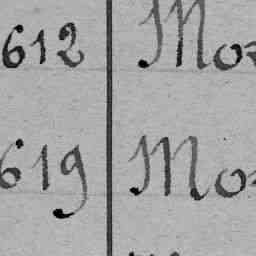 612 Mo
619 Mo